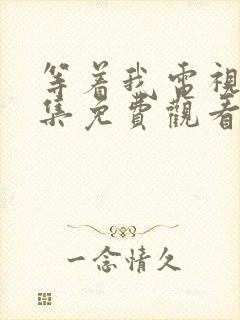 等着我電視
集免費觀看
一念情久